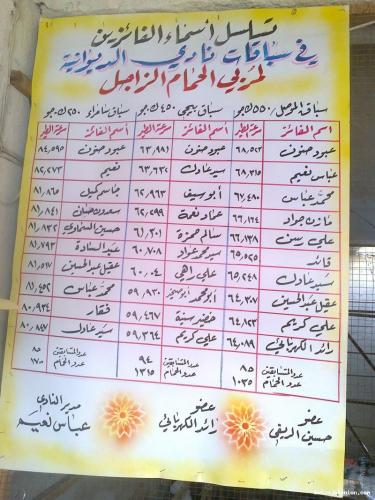 تسلسل أسماء الفائزين
في سباقات نادي الديوانية
لمربي الحمام الزاجل
سباق الموصل ٥٥٠ كم جو
سباق بيجي ٤٥٠ كم جو
سباق سامراء ٣٥٠ كم جو
اسم الفائز سرعة الطير اسم الفائز سرعة الطير اسم الفائز سرعة الطير
عبود حنون ٦٨,٥٢٣ عبود حنون ٦٣,٩٨١ عبود حنون ٨٤,٥٩٥
عباس نعيم ٦٨,٣١٥ سيد عادل ٦٣,٦٣٠ نعيم ٨٢,٢٧٣
محمد عباس ٦٧,٤٨٠ أبو سيف ٦٢,٩٦٣ جاسم كيل ٨١,٨٦٥
مازن جواد ٦٦,١٢٤ عماد نعمة ٦٢,٢٩٩ سعدون حسان ٨١,٨٤١
علي سن ٦٦,١٣٨ سالم حمزة ٦١,٣٠١ حسين السماوي ٨١,٨٣٣
قائد ٦٥,٥٢٥ سيد محمد عواد ٦٠,٧٠٨ عبد السادة ٨١,٧٩٣
سيد عادل ٦٥,٢٤٨ علي راهي ٦٠,٠٤ عقيل عبد الحسين ٨١,٥١٧
عقيل عبد الحسين ٦٤,٣٨٧ أبو محمد ٥٩,٩٣٠ محمد عباس ٨١,٤٥٢
علي كريم ٦٤,١٢٣ خضير سنية ٥٩,٤٦٧ فقار ٨٠,٩٣٤
رائد الكهربائي ٦٤,٠٨٩ علي كريم ٥٩,٣٦٤ سيد عادل ٨٠,٨٤٧
عدد المتسابقين ٨٥ عدد المتسابقين ٩٤ عدد المتسابقين ٨٥
عدد الحمام ١٠٣٥ عدد الحمام ١٣١٥ عدد الحمام ١٧٠٠
عضو
حسين الريفي
عضو
رائد الكهربائي
مدير النادي
عباس نعيم